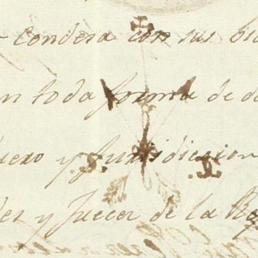 condera con sus bie
en toda forma de de
uero y Jurisdiccion
des y Jueces de la R